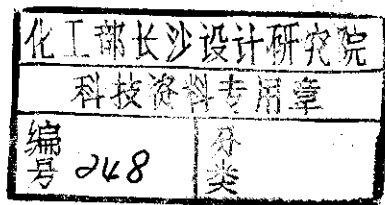 化工部长沙设计研究院
科技资料专用章
编号 248
分类